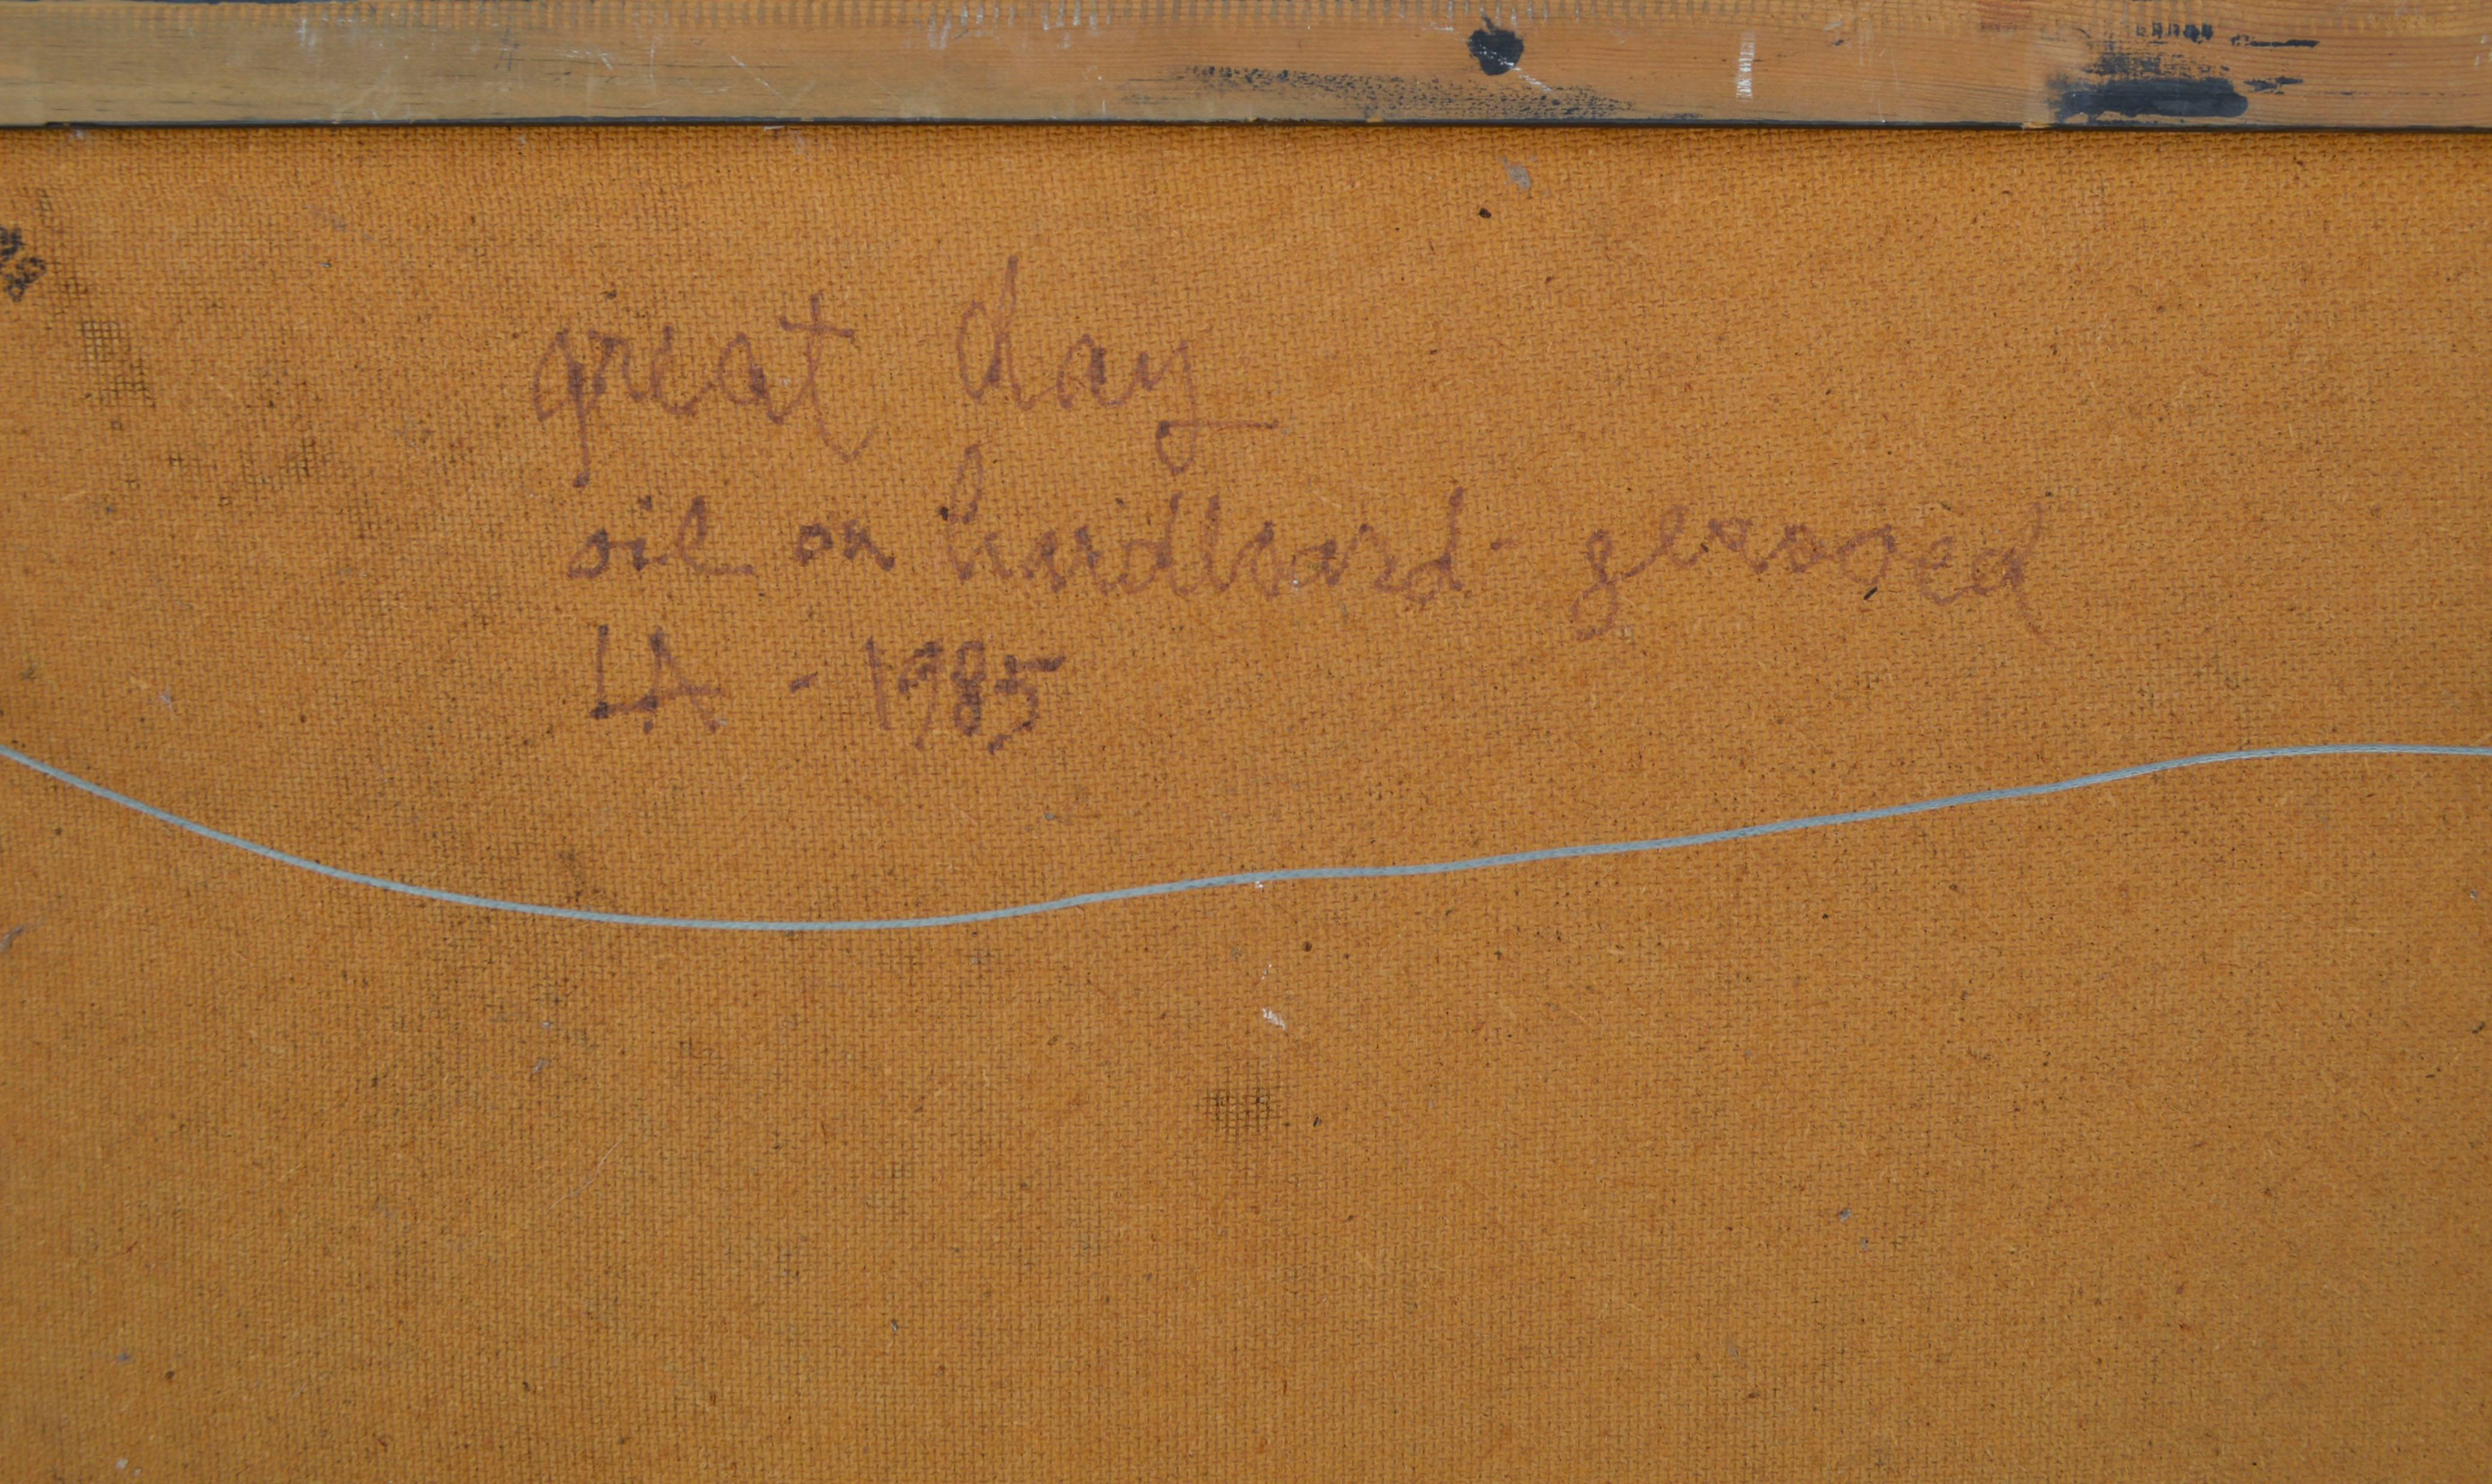 great day
oil on hardboard -
LA - 1985